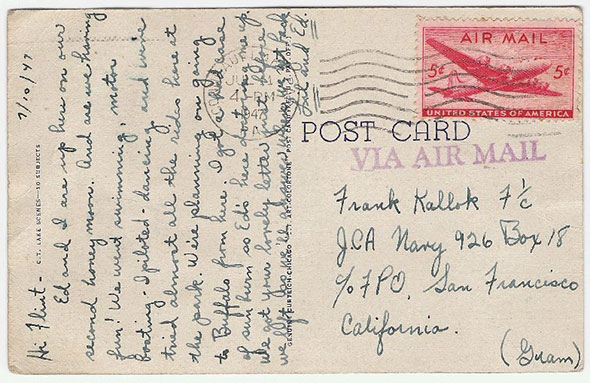 7/10/47
Hi Flint -
Ed and I are up here on our
second honeymoon. And are we having
fun! We went swimming, motor
boating - I piloted - dancing and we've
tried almost all the rides here at
the park. We're planning on going
to Buffalo from here. I got a bad case
of sun burn so Ed's here doctoring me up.
We got your lovely letter just before
we left we'll answer when we get back
and Ed.
C.T. LAKE SCENES—10 SUBJECTS
GENUINE CURTEICH-CHICAGO "C.T. ART-COLORTONE" POST CARD
AIR MAIL
5¢ 5¢
UNITED STATES OF AMERICA
POST CARD
VIA AIR MAIL
Frank Kallok F 1/c
J.C.A Navy 926 Box 18
c/o F.P.O. San Francisco
California.
(Guam)